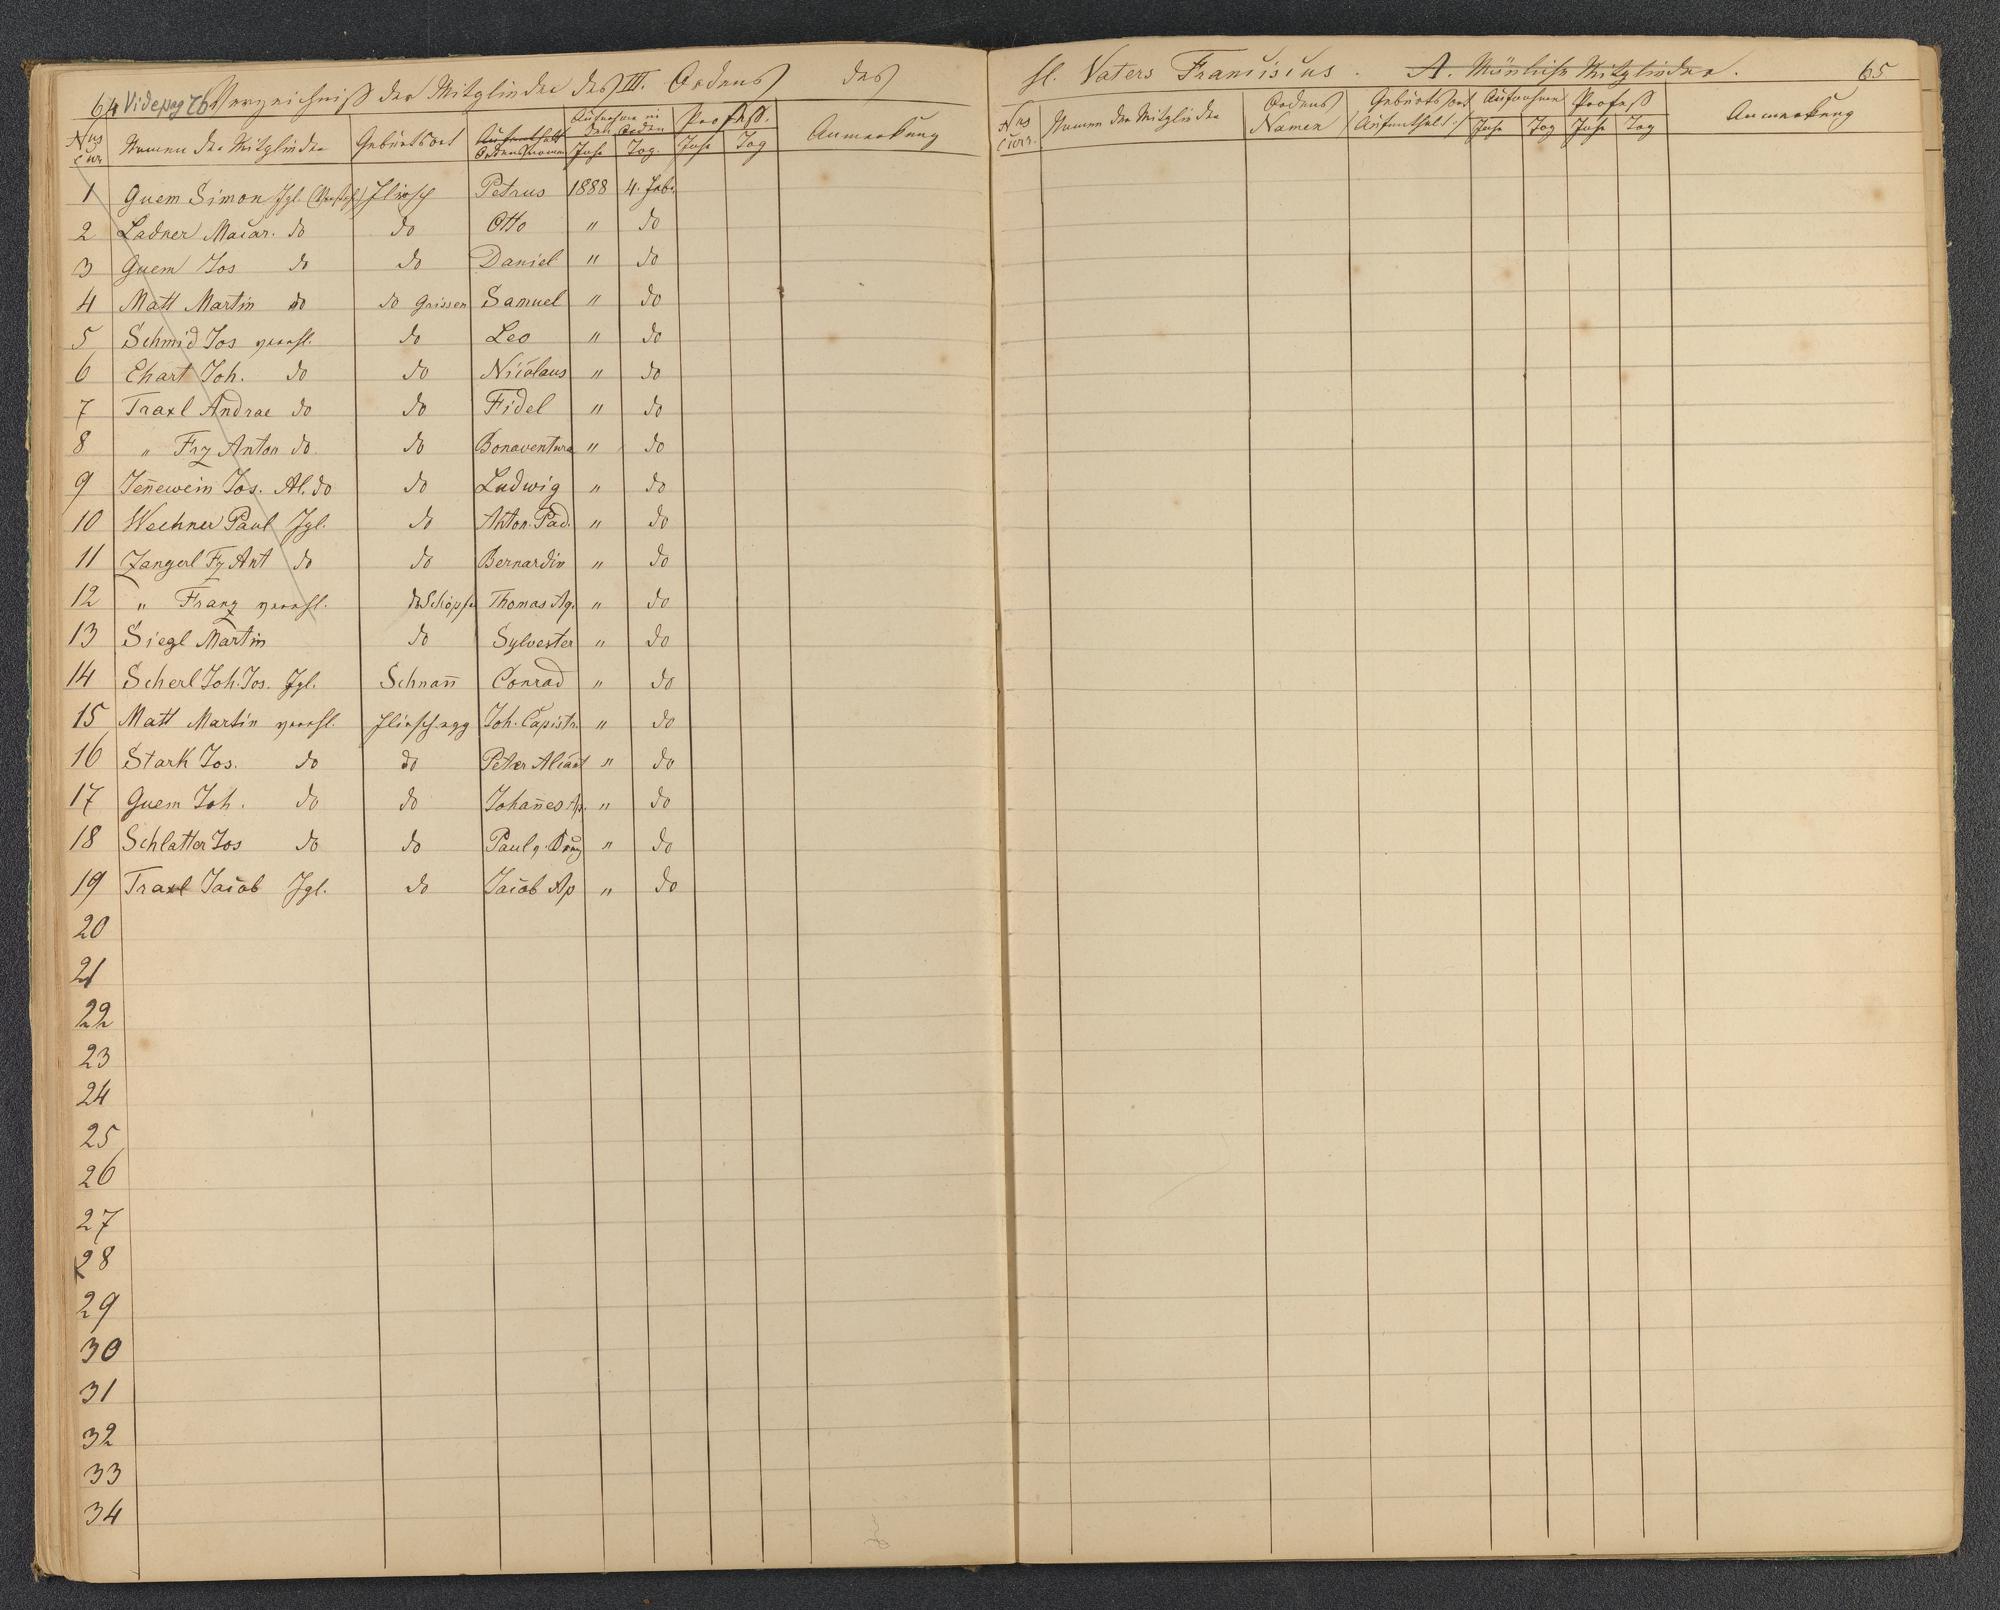 64 Vide pag 76 Verzeichniß der Mitglieder des III. Ordens des
Nus Curr Namen der Mitglieder Geburtsort Aufenthalt Ordensnamen Aufnahme in den Orden Jahr Tag. Profeß. Jahr Tag Anmerkung
1 Guem Simon Jgl. Flirsch Petrus 1888 4. Febr.
2 Ladner Macar. do do Otto " do
3 Guem Jos do do Daniel " do
4 Matt Martin do do Grissen Samuel " do
5 Schmid Jos verehl. do Leo " do
6 Ehart Joh. do do Nicolaus " do
7 Traxl Andrae do do Fidel " do
8 " Frz Anton do. do Bonaventura " do
9 Jen̄ewein Jos. Al. do do Ludwig " do
10 Wechner Paul Jgl. do Anton. Pad. " do
11 Zangerl Fz Ant do do Bernardin " do
12 " Franz verehl. do Schöpf Thomas Aq. " do
13 Siegl Martin do Sylvester " do
14 Scherl Joh. Jos. Jgl. Schnan̄ Conrad " do
15 Matt Martin verehl. Flirsch egg Joh. Capistr. " do
16 Stark Jos. do do Peter Alcant " do
17 Guem Joh. do do Johan̄es Ap. " do
18 Schlatter Jos do do Paul v. " do
19 Traxl Jacob Jgl. do Jacob Ap " do
20
21
22
23
24
25
26
27
28
29
30
31
32
33
34
hl. Vaters Franciscus. A. Mänliche Mitglieder. 65
Nus Curr. Namen der Mitglieder Ordens Namen Geburtsort /Aufenthalt./ Aufnahme Jahr Tag Profeß Jahr Tag Anmerkung